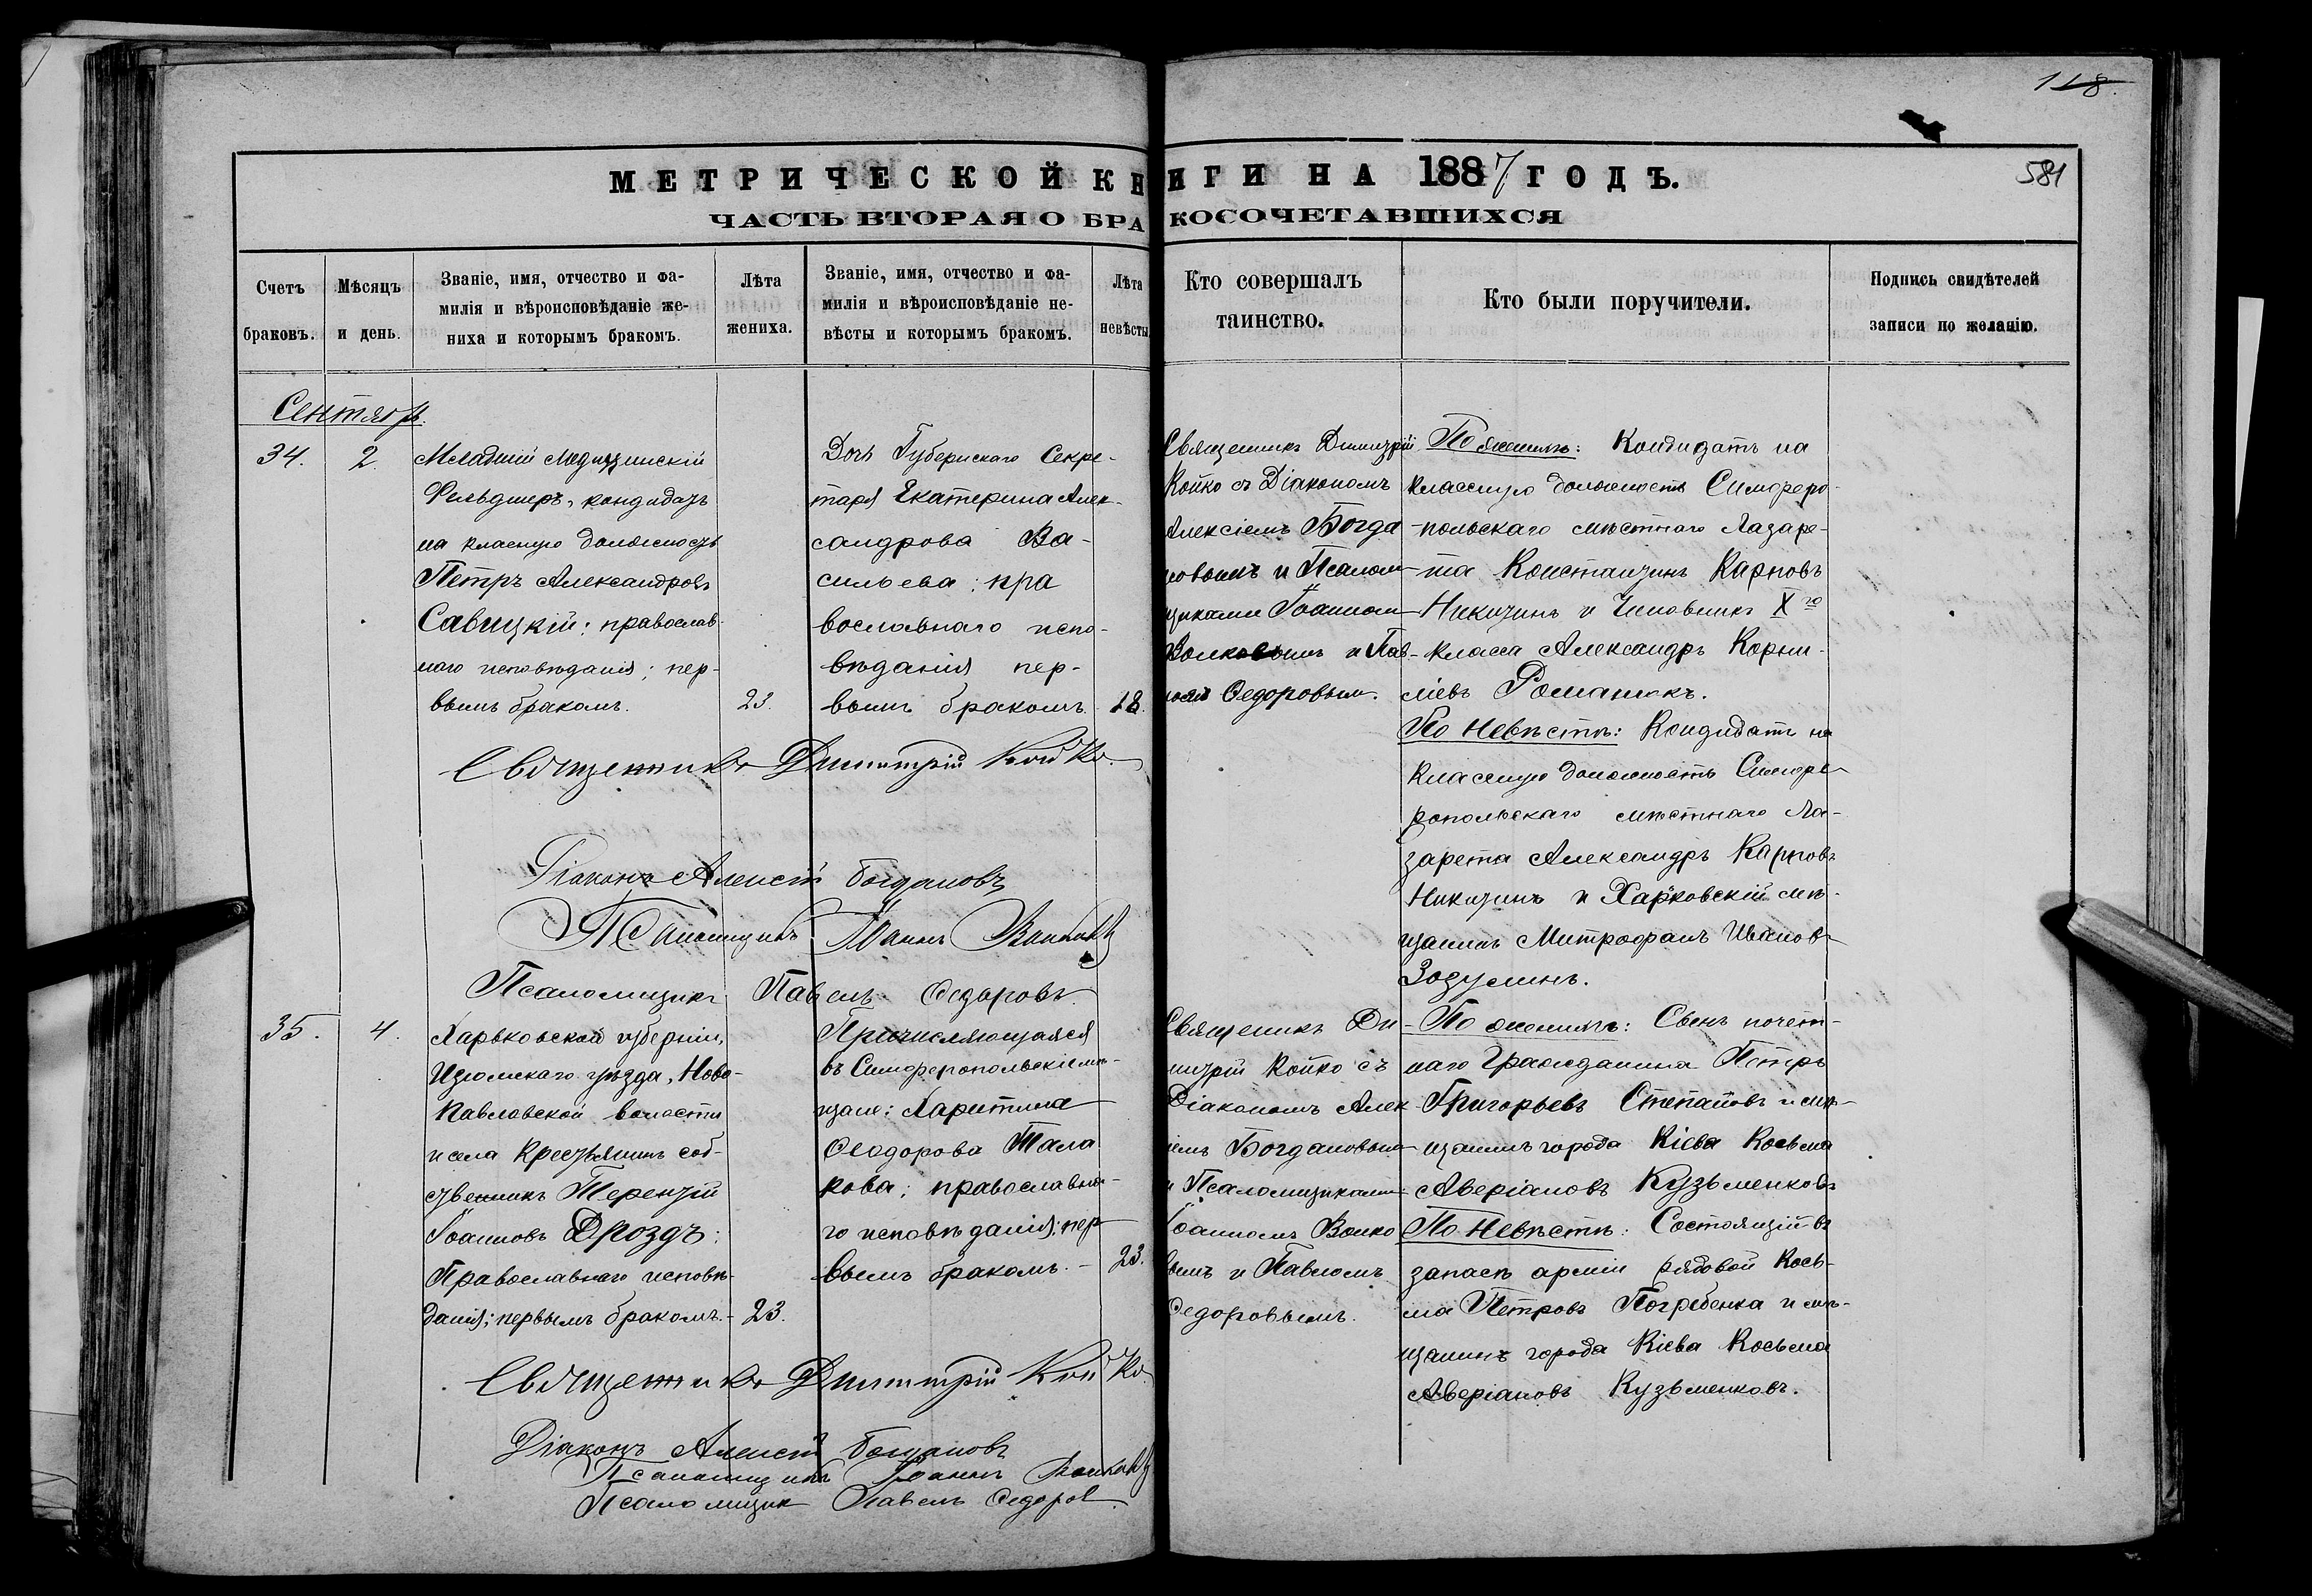 118.
МЕТРИЧЕСКОЙ КНИГИ НА 1887 ГОДЪ.
581
ЧАСТЬ ВТОРАЯ О БРАКОСОЧЕТАВШИХСЯ
Счетъ браковъ.
Мѣсяцъ и день.
Званіе, имя, отчество и фа-
милія и вѣроисповѣданіе же-
ниха и которымъ бракомъ.
Лѣта
жениха.
Званіе, имя, отчество и фа-
милія и вѣроисповѣданіе не-
вѣсты и которымъ бракомъ.
Лѣта
невѣсты
Кто совершалъ
таинство.
Кто были поручители.
Подпись свидѣтелей
записи по желанію.
Сентябрь.
34.
2.
Младшій Медицинскій
Фельдшеръ, кандидатъ
на класную должность
Петръ Александровъ
Савицкій; православ-
наго исповѣданія; пер-
вымъ бракомъ.
23.
Дочь Губернскаго Секре-
таря Екатерина Алек-
сандрова Ва-
сильева; пра
вославнаго испо-
вѣданія пер-
вымъ бракомъ.
18.
Священникъ Димитрій
Койко съ Діакономъ
Алексіемъ Богда
новымъ и Псалом
щиками Іоанном
Волковымъ и Пав-
ломъ Федоровым.
По женихѣ: Кандидатъ на
классную должность Симферо-
польскаго мѣстнаго Лазаре-
та Константинъ Карповъ
Никитинъ и Чиновникъ Xго
класса Александръ Корни-
ліевъ Романюкъ.
По Невѣстѣ: Кандидатъ на
классную должность Симфе-
ропольскаго мѣстнаго Ла-
зарета Александръ Карповъ
Никитинъ и Харьковскій мѣ-
щанинъ Митрофанъ Иванов
Зозулинъ.
Священникъ Димитрій Койко.
Діаконъ Алексій Богдановъ
Псаломщикъ Іоаннъ Волковъ
Псаломщикъ Павелъ Федоровъ
35.
4.
Харьковской губерніи,
Изюмскаго уѣзда, Ново-
павловской волости
и села крестьянинъ соб-
ственникъ Терентій
Іоанновъ Дроздъ;
Православнаго исповѣ-
данія; первымъ бракомъ.-
23.
Причисляющаяся
въ Симферопольскіе мѣ-
щане: Харитина
Феодорова Тала
кова; православна-
го исповѣданія; пер
вымъ бракомъ.-
23.
Священникъ Ди-
митрій Койко съ
Діакономъ Алек
іемъ Богдановым
и Псаломщиками
Іоанномъ Волко
вымъ и Павломъ
Федоровымъ.
По женихѣ: Сынъ почет-
наго Гражданина Петръ
Григорьевъ Степановъ и мѣ-
щанинъ города Кіева Косьма
Аверіановъ Кузьменковъ
По Невѣстѣ: Состоящій въ
запасѣ арміи рядовой Кось-
ма Петровъ Погребенка и мѣ-
щанинъ города Кіева Косьма
Аверіановъ Кузьменковъ.
Священникъ Димитрій Койко
Діаконъ Алексій Богдановъ
Псаломщикъ Іоаннъ Волковъ
Псаломщик Павелъ Федоров